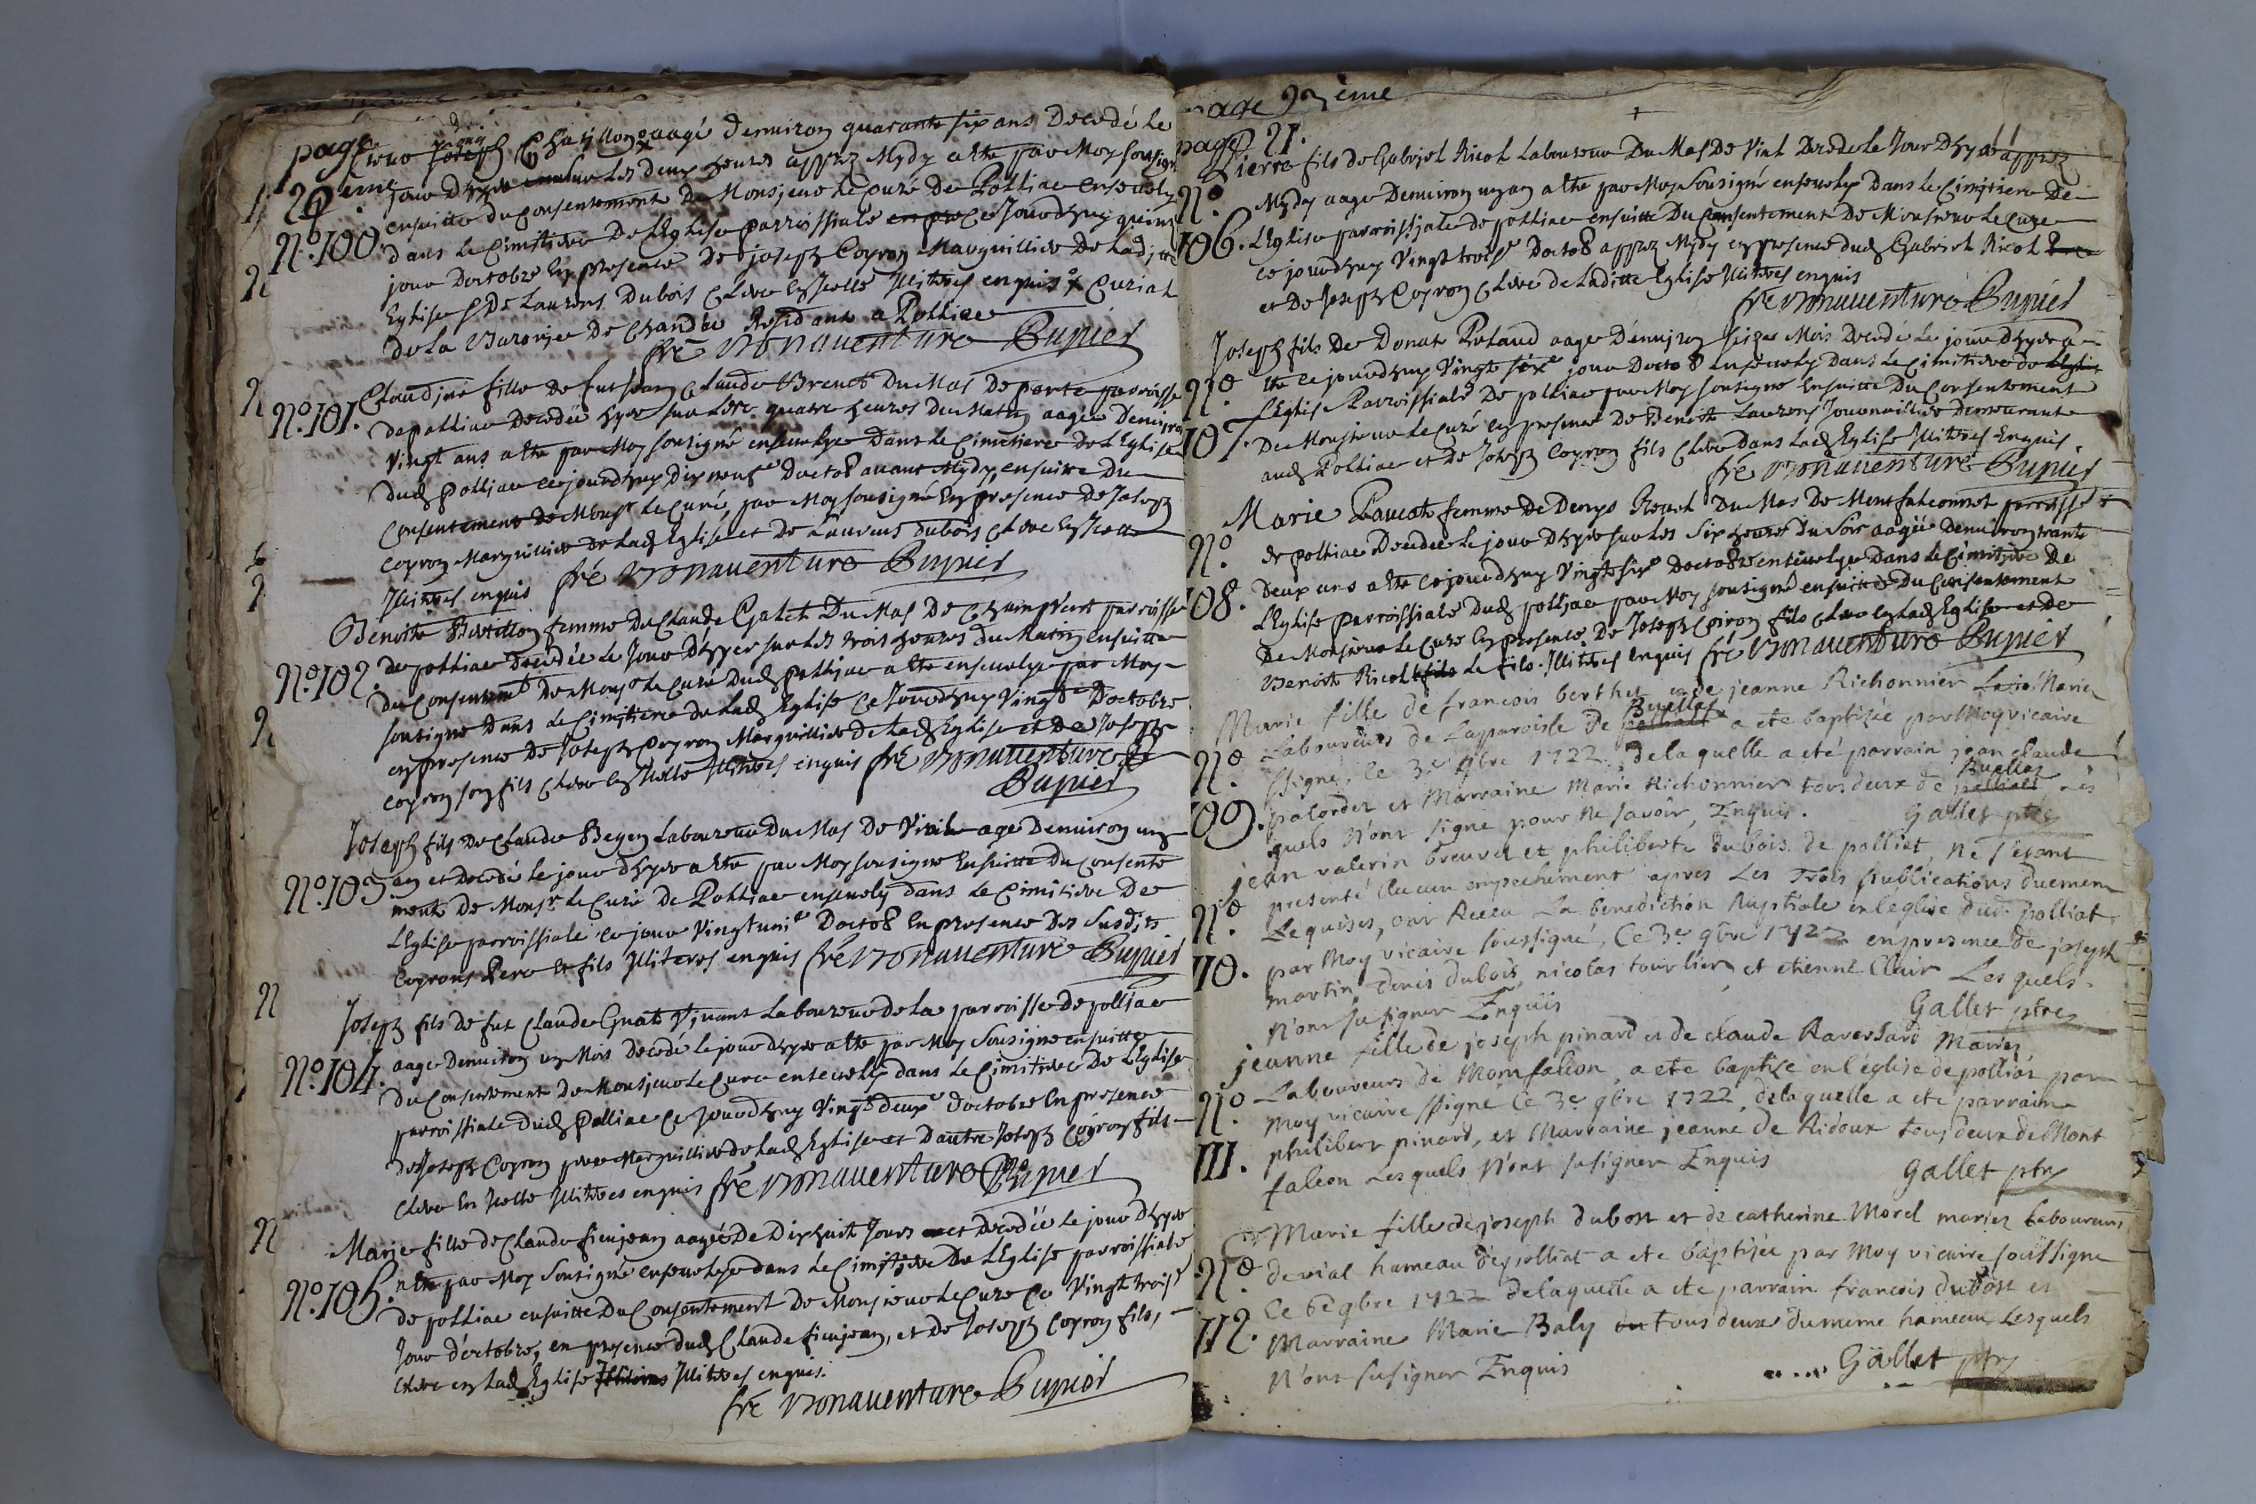 page
Pierre Joseph Chatillon aagé denuiron quarante six ans decedé le
jour dhyer sur les deux heures apprez Mydy a ete par Moy sousigné
ensuitte du consentement de Monsieur le Curé de Polliac enseuely
N.º 100. dans le Cimitiere de l'Eglise parroissiale ce jourdhuy quinz
jour doctobre en presence de joseph Coyron Marguillier de Ladite
Eglise & de Laurens Dubois Clerc en Icelle Illiteres enquis
de la Baronie de Chandée Residant a Polliac
fré Bonauenture Bupuies
N.º 101. Claudine fille de fut Jean Claude Brenet du Mas de porte parroisse
de polliac decedée hyer sur les quatre heures du Matin aagée denuiron
Vingt ans a ete par Moy sousigné enseuelye dans le Cimetiere de l'Eglise
dud polliac ce jourdhuy dix neufe docto8 auant Mydy, ensuitte du
consentement de Monsr le Curé, par Moy sousigné en presence de Joseph
Coyron Marguillier de lad Eglise et de Laurens dubois Clerc en Icelle
Illiteres enquis fré Bonauenture Bupuies
Benoite Bertillon femme de Claude Galet du Mas de parroisse
N.º 102. de polliac decedée le Jour dhyer sur les trois heures du Matin ensuitte
du consentemt de Monsr le Curé dud polliac a ete enseuelye par Moy
sousigné dans le Cimitiere de lad Eglise ce Jourdhuy Vingte doctobre
en presence de Joseph Coyron Marguillier de lad Eglise et de Joseph
Coyron son fils Clerc en Icelle Illiteres enquis fré Bonauenture
Bupuies
Joseph fils de Claude Begen Laboureur du Mas de Vial age denuiron un
N.º 103 an et decedé le jour dhyer a ete par Moy sousigné ensuitte du consente
ment de Monsr le Curé de Polliac enseuely dans le Cimitiere de
l'Eglise parroissiale ce jour Vingt unie docto8 en presence des susdits
Coyrons Pere & fils Illiteres enquis fré Bonauenture Bupuies
Joseph fils de fut Claude Viuant Laboureur de la parroisse de polliac
N.º 104. aage denuiron un Mois decedé le jour dhyer a ete par Moy sousigné ensuitte
du consentement de Monsieur le Curé enseuely dans le Cimitiere de l'Eglise
parroissiale dud Polliac ce Jourdhuy Vingt deuxe doctobre en presence
de Joseph Coyron pere Marguillier de lad Eglise et dautre Joseph Coyron fils
Clerc en Icelle Illiteres enquis fré Bonauenture Bupuies
Marie fille de Claude fieujean aagée de dix huit Jours et decedée le jour dhyer
N.º 105. a ete par Moy sousigné enseuelye dans le Cimitiere de l'Eglise parroissiale
de polliac ensuitte du consentement de Monsieur le Curé ce Vingt troise
Jour doctobre, en presence dud Claude fieujean, et de Joseph Coyron fils,
Clerc en lad Eglise Illiteres enquis.
fré Bonauenture Bupuies
page 21.
Pierre fils de Gabriel Ricol Laboureur du Mas de Vial decedé le Jour dhyer apprez
N.º Mydy aage denuiron un an a ete par Moy sousigné enseuely dans le Cimitiere de
106. l'Eglise parroissiale de polliac ensuitte du consentement de Monsieur le Curé
ce jourdhuy Vingt troise docto8 apprez Mydy en presence dud Gabriel Ricol
et de Joseph Coyron Clerc de Laditte Eglise Illiteres enquis
fré Bonauenture Bupuies
Joseph fils de Donat Roland aage denuiron seize Mois decedé le jour dhyer a
N.º ete ce jourdhuy Vingt sixe jour docto8 enseuely dans le Cimitiere de
107. l'Eglise Parroissiale de polliac par Moy sousigné ensuitte du consentement
de Monsieur le Curé en presence de Benoit Laurens Jouvnallier demeurant
aud Polliac et de Joseph Coyron fils Clerc dans lad Eglise Illiteres Enquis.
fré Bonauenture Bupuies
Marie Paucat femme de Denys du Mas de Montfalconnet parroisse
N.º de polliac decedée le jour dhyer sur les six heures du soir aagée denuiron trante
108. deux ans a ete ce jourdhuy Vingt sixe docto8 enseuelye dans le Cimitiere de
l'Eglise parroissiale dud polliac par Moy sousigné ensuitte du consentement
de Monsieur le Curé en presence de Joseph Coyron fils Clerc en lad Eglise et de
Benoit Ricol le fils. Illiteres enquis fré Bonauenture Bupuies
Marie fille de francois berthet et de jeanne Richonnier Mariez
N.º Laboureurs de Laparoisse de Buellas a ete baptisée par Moy vicaire
ssigné, Ce 3e 9bre 1722 delaquelle a eté parrain jean claude
109. palordet et Marraine Marie Richonnier tous deux de Buellas Les
quels N'ont signé pour Ne savoir, Enquis. Gallet ptre
jean valerin brevet et philiberte dubois de polliat, Ne s'étant
N.º presenté Aucun empechement apres Les Trois publications duement
Requises, ont Receu La benediction Nuptiale en léglise dud. polliat
110. par Moy vicaire soussigné, Ce 3e 9bre 1722 en presence de joseph
martin denis dubois nicolas tourlier et etienne Clair Les quels.
N'ont su signer Enquis Gallet ptre
jeanne fille de joseph pinard et de claude Ravessard Mariez
N.º Laboureurs de Monfalcon, a ete baptisé en léglise de polliat par
Moy vicaire ssigné Ce 3e 9bre 1722, delaquelle a ete parrain
111. philibert pinard, et Marraine jeanne de Ridoux tous deux de Mont
falcon Les quels N'ont su signer Enquis Gallet ptre
Marie fille de joseph dubost et de catherine Morel mariez Laboureurs
N.º de vial hameau de polliat a ete baptisée par Moy vicaire soussigné
Ce 6e 9bre 1722 delaquelle a ete parrain francois dubost et
112. Marraine Marie Baly tous deux du meme hameau Lesquels
N'ont su signer Enquis .... Gallet ptre